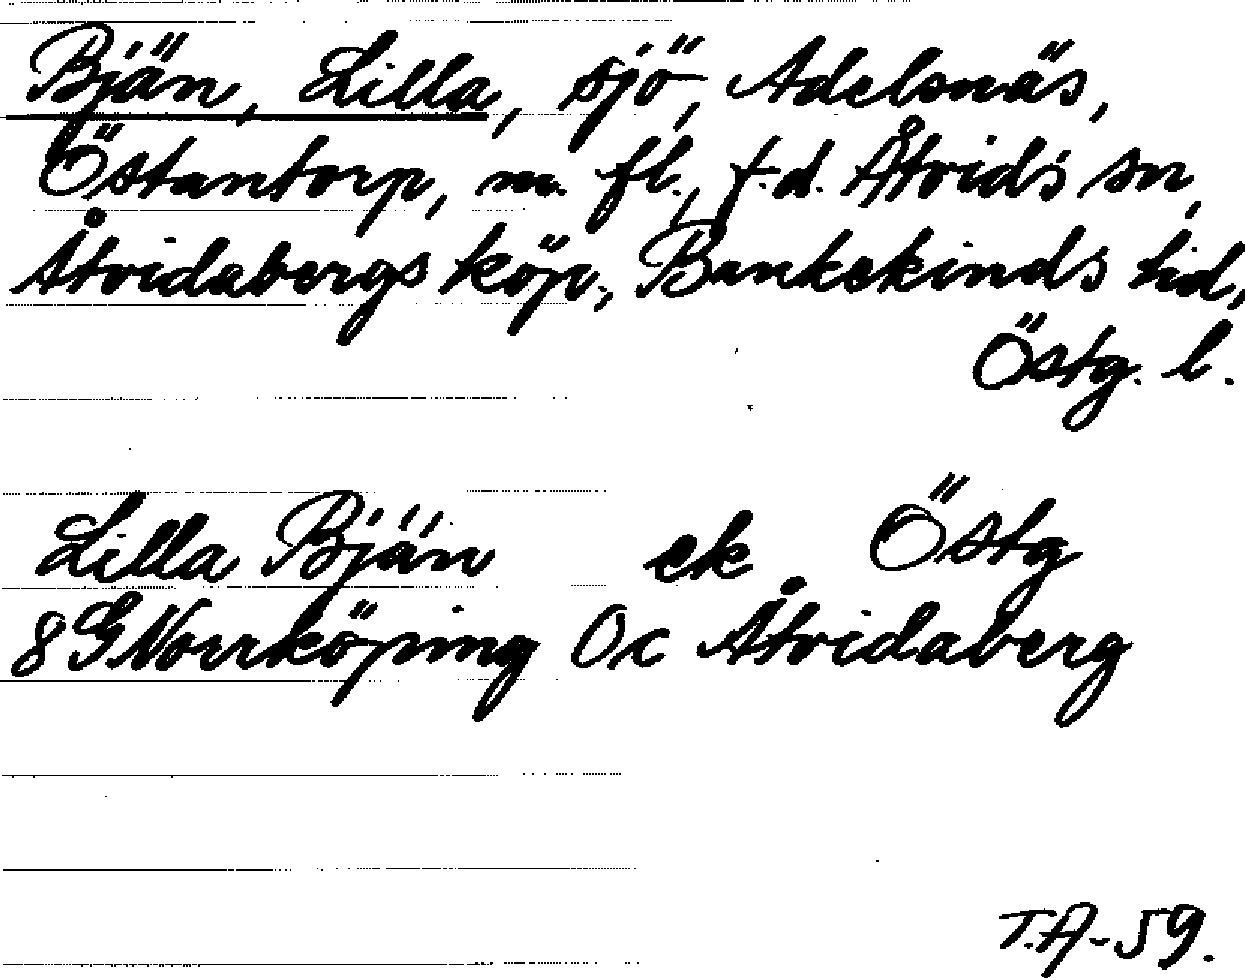 Bjän, Lilla, sjö, Adelsnäs,
Östantorp, m. fl., f.d. Åtvids sn,
Åtvidabergs köp., Bankekinds hd,
Östg. l.
Lilla Bjän ek Östg
8G Norrköping 0c Åtvidaberg
T.A-59.